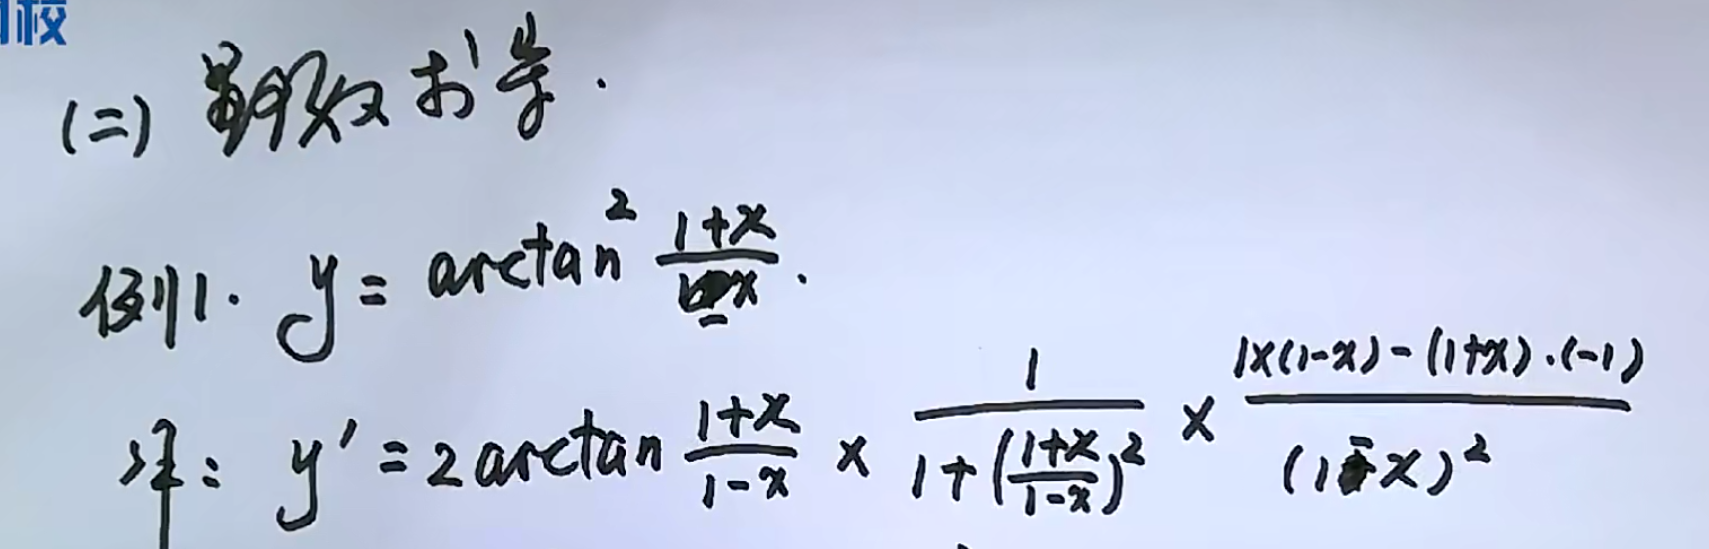 校
(二) 显函数求导.
例1. y = arctan² (1+x)/(1-x).
解: y' = 2 arctan (1+x)/(1-x) × 1/(1+((1+x)/(1-x))²) × (1×(1-x)-(1+x)·(-1))/(1-x)²